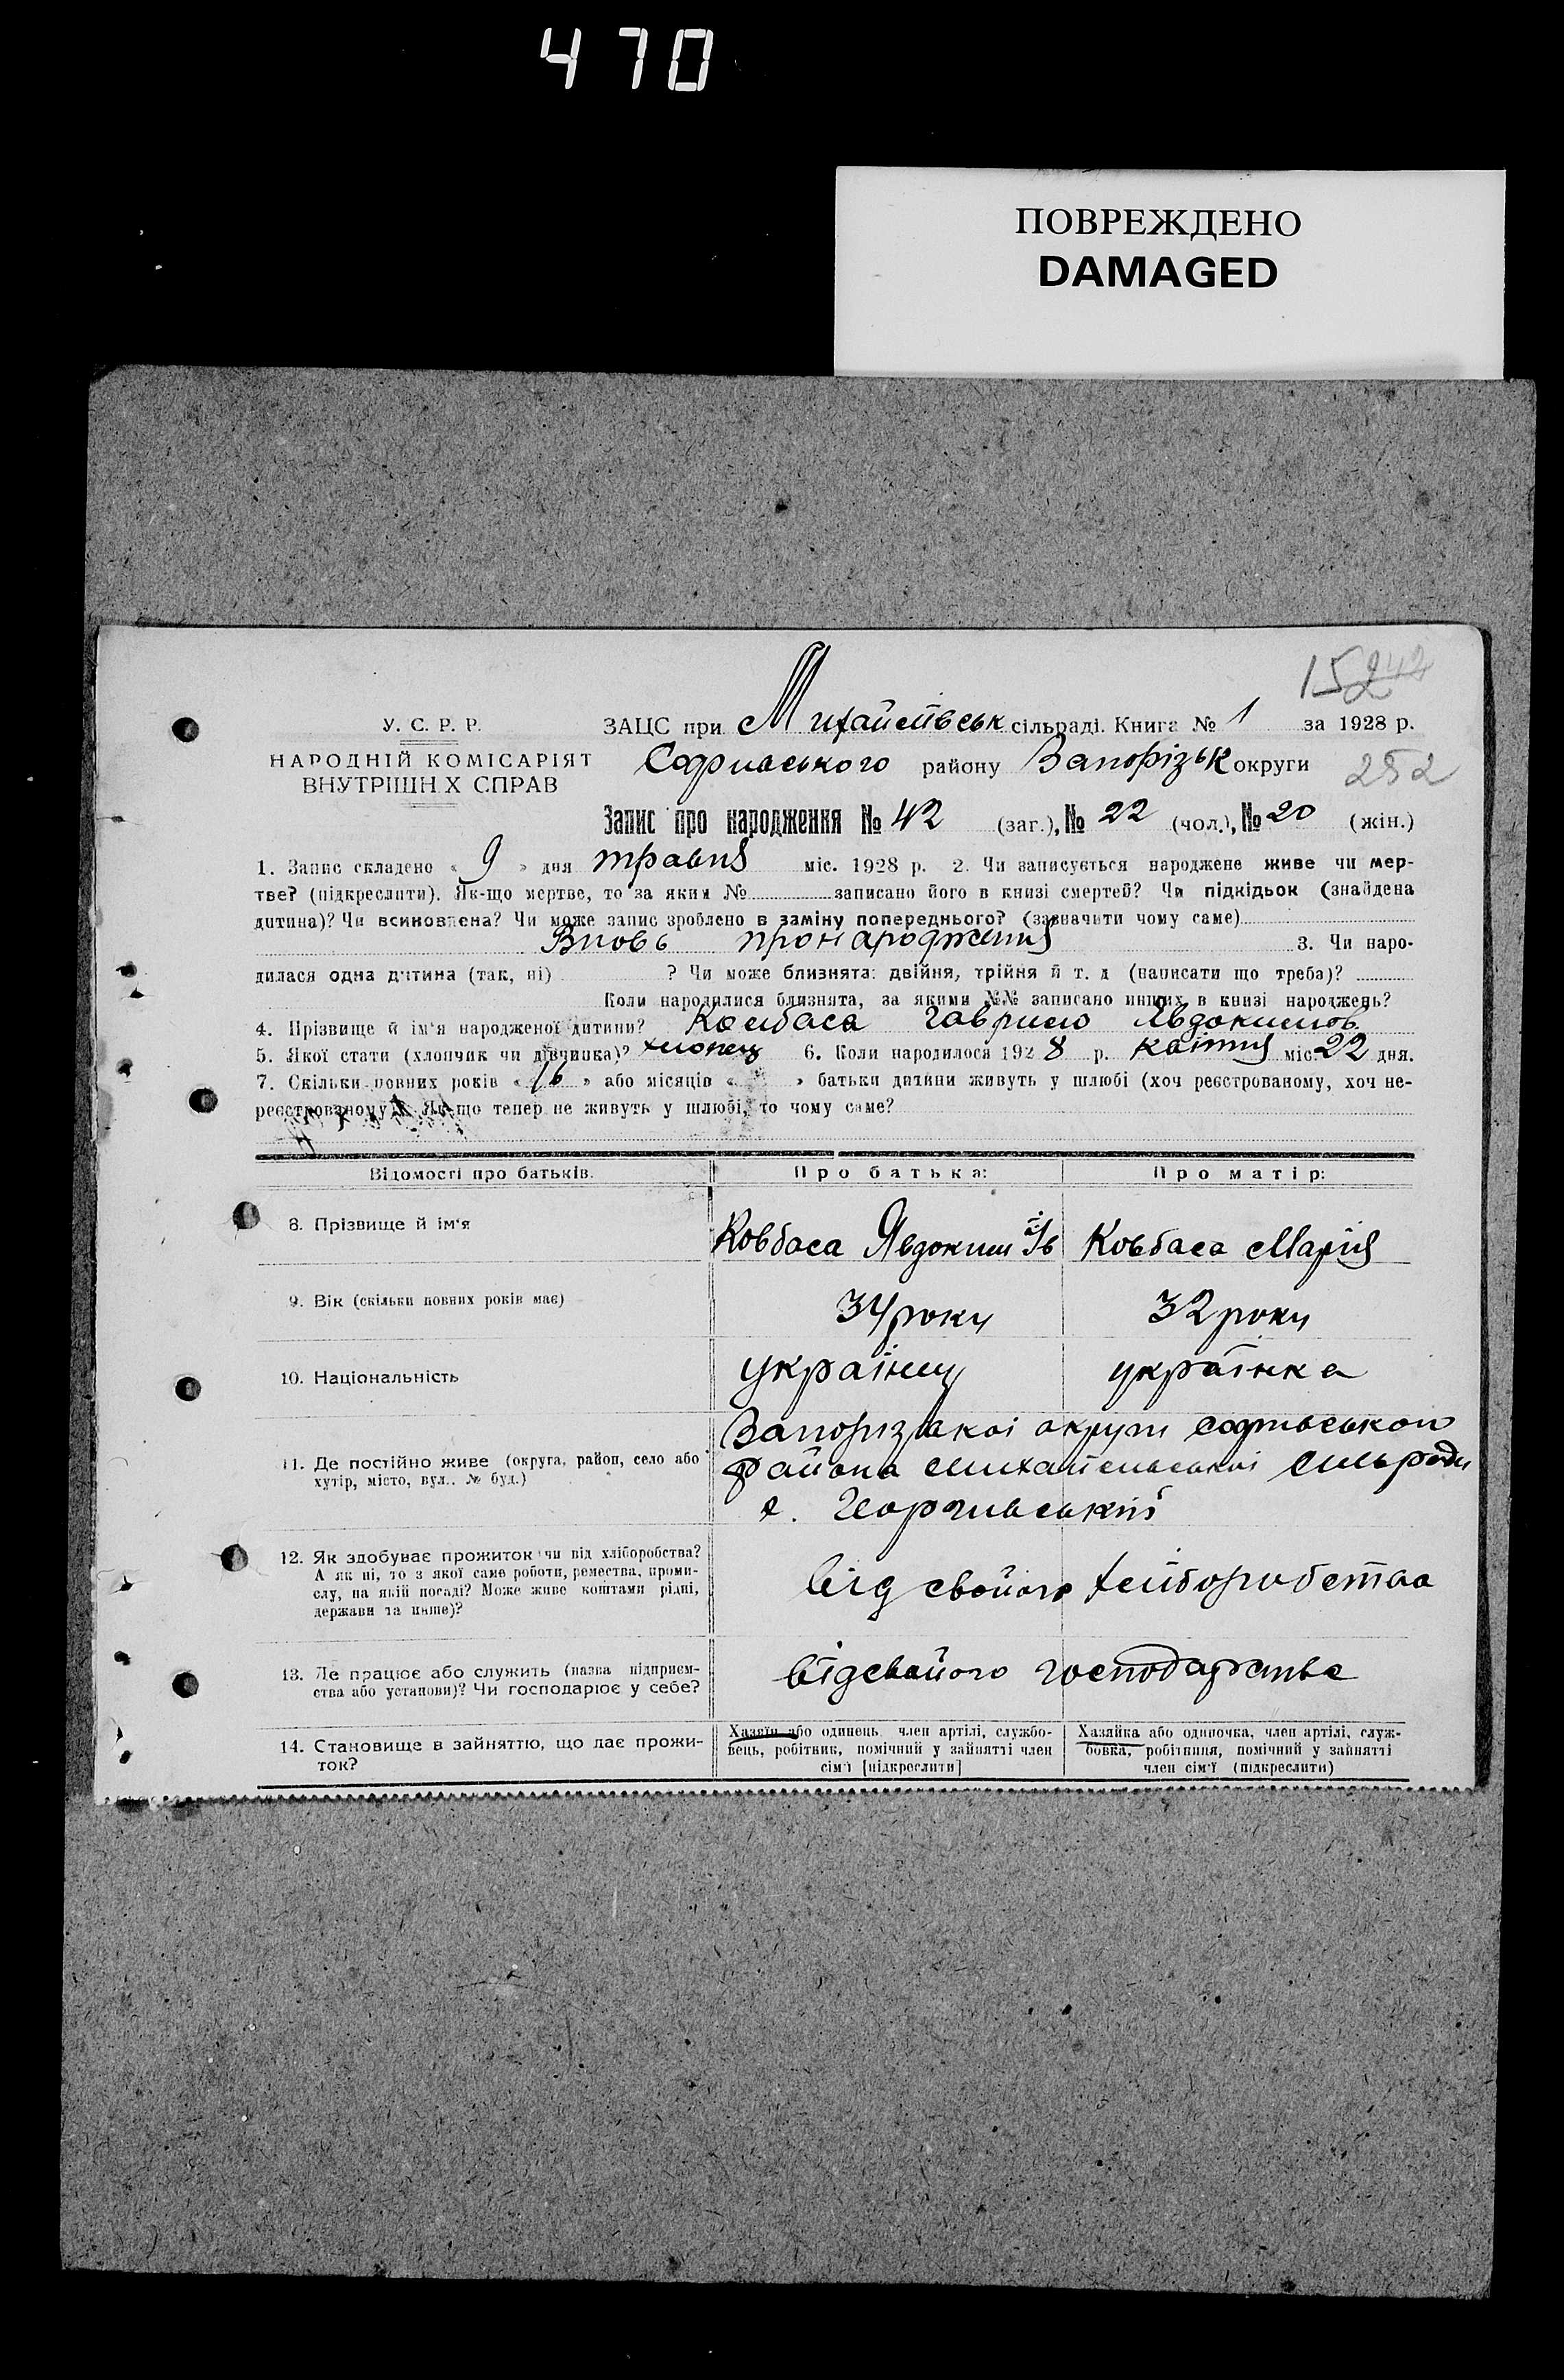 470
ПОВРЕЖДЕНО
DAMAGED
15242
У. С. Р. Р.
НАРОДНІЙ КОМІСАРІЯТ
ВНУТРІШН Х СПРАВ
ЗАЦС при Михайлівськ сільраді. Книга № 1 за 1928 р.
Софиівського району Запорізьк округи 252
Запис про народження № 42 (заг.), № 22 (чол.), № 20 (жін.)
1. Запис складено « 9 » дня травня міс. 1928 р. 2. Чи записується народжене живе чи мер-
тве? (підкреслити). Як-що мертве, то за яким № записано його в книзі смертей? Чи підкідьок (знайдена
дитина)? Чи всиновлена? Чи може запис зроблено в заміну попереднього? (зазначити чому саме)
Вновь про народження 3. Чи наро-
дилася одна дитина (так, ні) ? Чи може близнята: двійня, трійня й т. д (написати що треба)?
Коли народилися близнята, за якими №№ записано инших в книзі народжень?
4. Прізвище й ім'я народженої дитини? Ковбаса Гаврило Явдокимов
5. Якої стати (хлопчик чи дівчинка)? хлопец 6. Коли народилося 1928 р. квітня міс 22 дня.
7. Скільки повних років « 16 » або місяців « » батьки дитини живуть у шлюбі (хоч реєстрованому, хоч не-
реєстрованому)? Як-що тепер не живуть у шлюбі, то чому саме?
Відомості про батьків. Про батька: Про матір:
8. Прізвище й ім'я Ковбаса Явдоким Ів Ковбаса Марія
9. Вік (скільки повних років має) 34 роки 32 роки
10. Національність украінец украінка
Запорізькоі округи Софиівського
11. Де постійно живе (округа, район, село або
хутір, місто, вул.. № буд.)
района Михайлівськоі сильради
Георгиівський
12. Як здобуває прожиток чи від хліборобства?
А як ні, то з якої саме роботи, ремества, проми-
слу, на якій посаді? Може живе коштами рідні,
держави та инше)?
від свойого хліборобства
13. Де працює або служить (назва підприєм-
ства або установи)? Чи господарює у себе?
від свойого господарства
14. Становище в зайняттю, що дає прожи-
ток?
Хазяїн або одинець член артілі, службо-
вець, робітник, помічний у зайнятті член
сім'ї [підкреслити]
Хазяйка або одиночка, член артілі, служ-
бовка, робітниця, помічний у зайнятті
член сім'ї (підкреслити)